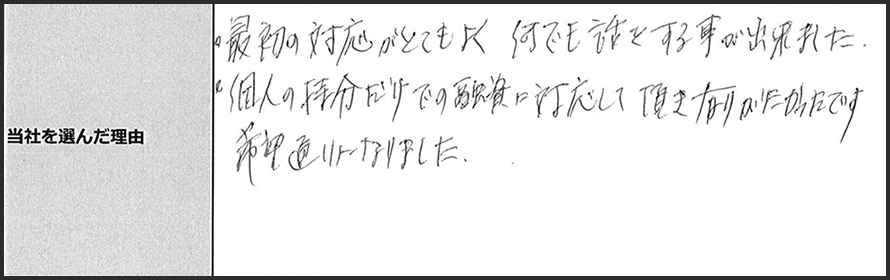 当社を選んだ理由
・最初の対応がとてもよく 何でも話をする事が出来ました.
・個人の持分だけでの融資に対応して頂き有りがたかったです
希望通りになりました.